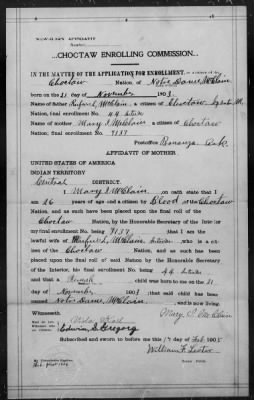 NEW-BORN AFFIDAVIT
Number
CHOCTAW ENROLLING COMMISSION.
IN THE MATTER OF THE APPLICATION FOR ENROLLMENT, as a citizen of the
Choctaw Nation, of Notie Dame McClain
born on the 21 day of November 1903
Name of father Rufus L. McClain, a citizen of Choctaw
Nation, final enrollment No. 44
Name of mother Mary S. McClain a citizen of Choctaw
Nation, final enrollment No. 9137
Postoffice Bonanza Ark.
AFFIDAVIT OF MOTHER.
UNITED STATES OF AMERICA
INDIAN TERRITORY
Central DISTRICT.
I Mary S McClain, on oath state that I
am 26 years of age and a citizen by Blood of the Choctaw
Nation, and as such have been placed upon the final roll of the
Choctaw Nation, by the Honorable Secretary of the Interior
my final enrollment No. being 9137; that I am the
lawful wife of Rufus L. McClain, who is a citizen
of the Choctaw Nation, and as such has been
placed upon the final roll of said Nation by the Honorable Secretary
of the Interior, his final enrollment No. being 44
and that a Female child was born to me on the 21
day of November 1903; that said child has been
named Notie Dame McClain, and is now living.
Witnesseth. Mary S. McClain
Must be two Witnesses who are Citizens.
Edwin S. Gregory
Subscribed and sworn to before me this 17 day of Feb 1905
William F. Lester
Notary Public.
My Commission Expires: